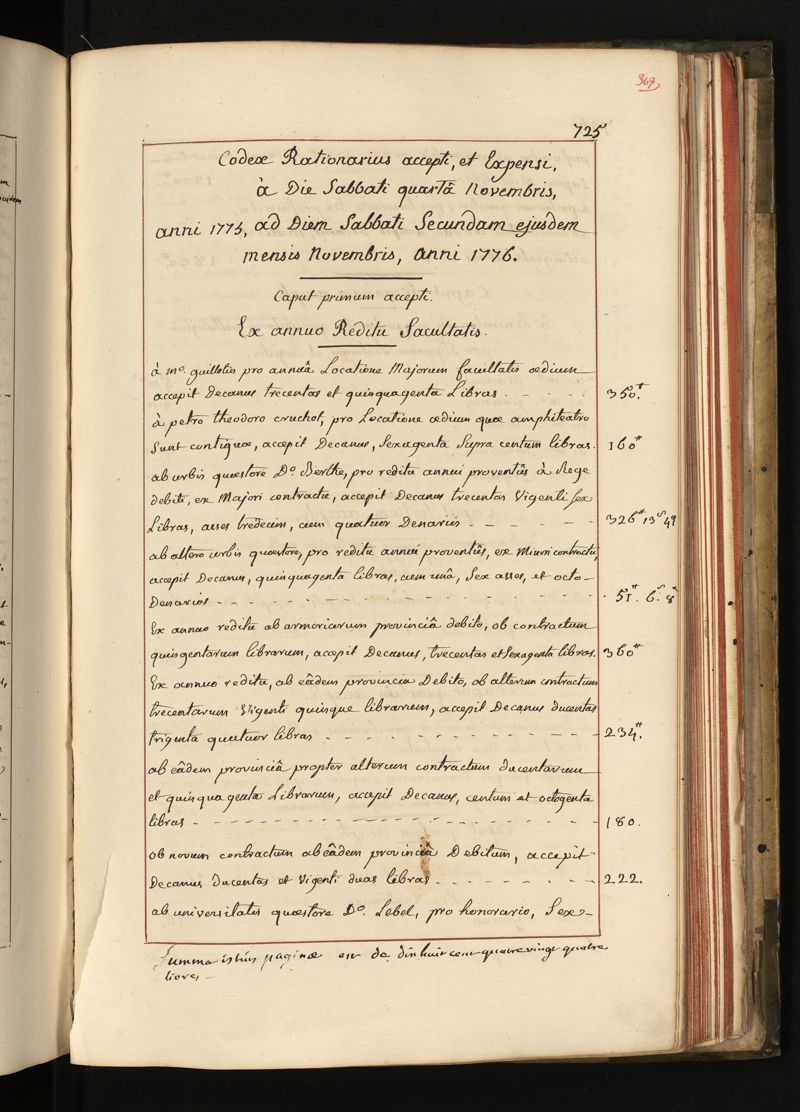 367
725
Codex Rationarius accepti, et Expensi,
à Die Sabbati quartâ Novembris,
anni 1775, ad Diem Sabbati Secundam ejusdem
mensis Novembris, anni 1776.
Caput primum accepti.
Ex annuo Reditu Facultatis.
à mo. guillotin pro annuâ Locatione Majorum facultatis ædium
accepit Decanus trecentas et quinquagenta Libras. - - - - 350.tt
à petro theodoro cruchot, pro Locatione ædium quæ amphiteatro
Sunt contiguæ, accepit Decanus, Sexagenta Supra centum libras. 160tt
ab urbis quæstore Do. Berthe, pro reditu annui proventûs à Rege
debiti, ex Majori contractu, accepit Decanus trecentas Vigenti sex
Libras, asses tredecim, cum quatuor Denariis - - - - - - - 326tt 13s 4d
ab altero urbis quæstore, pro reditu annui proventûs, ex Minori contractu,
accepit Decanus, quinquagenta libras, cum unâ, Sex asses, et octo-
Denarios - - - - - - - - - - - - - - - . 51.tt 6.s 8d
Ex annuo reditu ab armoricorum provinciâ debito, ob contractum
quingentarum librarum, accepit Decanus, trecentas et Sexagenta libras. 360tt
Ex annuo reditu, ab eâdem provincia Debito, ob alterum contractum
trecentarum Vigenti quinque librarum, accepit Decanus ducentas
trigenta quatuor libras - - - - - - - - - - - 234.tt
ab eâdem provinciâ propter alterum contractum ducentarum
et quinquagenta Librarum, accepit Decanus, centum et octogenta
libras - - - - - - - - - - - - - - - - - 180.
ob novum contractum ab eâdem provinciâ Debitum, accepit
Decanus ducentas et Vigenti duas libras - - - - - - - 222.
ab universitatis quæstore Do. Lebel, pro honorario, Sex-
Summa istius paginæ est de dix huit cent quatre vingt quatre
livres -